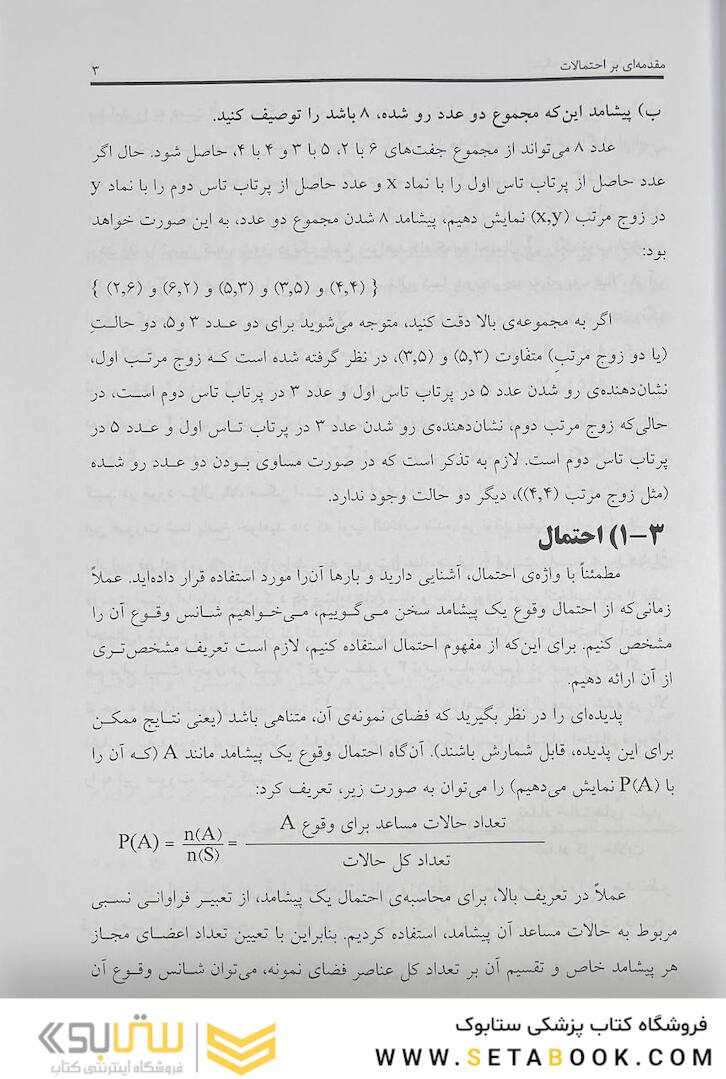 مقدمه‌ای بر احتمالات ۳
ب) پیشامد این‌که مجموع دو عدد رو شده، ۸ باشد را توصیف کنید.
عدد ۸ می‌تواند از مجموع جفت‌های ۶ با ۲، ۵ با ۳ و ۴ با ۴، حاصل شود. حال اگر
عدد حاصل از پرتاب تاس اول را با نماد x و عدد حاصل از پرتاب تاس دوم را با نماد y
در زوج مرتب (x,y) نمایش دهیم، پیشامد ۸ شدن مجموع دو عدد، به این صورت خواهد
بود:
{ (۴,۴) و (۳,۵) و (۵,۳) و (۶,۲) و (۲,۶) }
اگر به مجموعه‌ی بالا دقت کنید، متوجه می‌شوید برای دو عدد ۳ و۵، دو حالتِ
(یا دو زوج مرتبِ) متفاوت (۵,۳) و (۳,۵)، در نظر گرفته شده است که زوج مرتب اول،
نشان‌دهنده‌ی رو شدن عدد ۵ در پرتاب تاس اول و عدد ۳ در پرتاب تاس دوم است، در
حالی‌که زوج مرتب دوم، نشان‌دهنده‌ی رو شدن عدد ۳ در پرتاب تاس اول و عدد ۵ در
پرتاب تاس دوم است. لازم به تذکر است که در صورت مساوی بودن دو عدد رو شده
(مثل زوج مرتب (۴,۴))، دیگر دو حالت وجود ندارد.
۱-۳) احتمال
مطمئناً با واژه‌ی احتمال، آشنایی دارید و بارها آن‌را مورد استفاده قرار داده‌اید. عملاً
زمانی‌که از احتمال وقوع یک پیشامد سخن می‌گوییم، می‌خواهیم شانس وقوع آن را
مشخص کنیم. برای این‌که از مفهوم احتمال استفاده کنیم، لازم است تعریف مشخص‌تری
از آن ارائه دهیم.
پدیده‌ای را در نظر بگیرید که فضای نمونه‌ی آن، متناهی باشد (یعنی نتایج ممکن
برای این پدیده، قابل شمارش باشند). آن‌گاه احتمال وقوع یک پیشامد مانند A (که آن را
با P(A) نمایش می‌دهیم) را می‌توان به صورت زیر، تعریف کرد:
P(A) = n(A)/n(S) = تعداد حالات مساعد برای وقوع A
تعداد کل حالات
عملاً در تعریف بالا، برای محاسبه‌ی احتمال یک پیشامد، از تعبیر فراوانی نسبی
مربوط به حالات مساعد آن پیشامد، استفاده کردیم. بنابراین با تعیین تعداد اعضای مجاز
هر پیشامد خاص و تقسیم آن بر تعداد کل عناصر فضای نمونه، می‌توان شانس وقوع آن
فروشگاه کتاب پزشکی ستابوک
WWW.SETABOOK.COM
ستابوک
فروشگاه اینترنتی کتاب